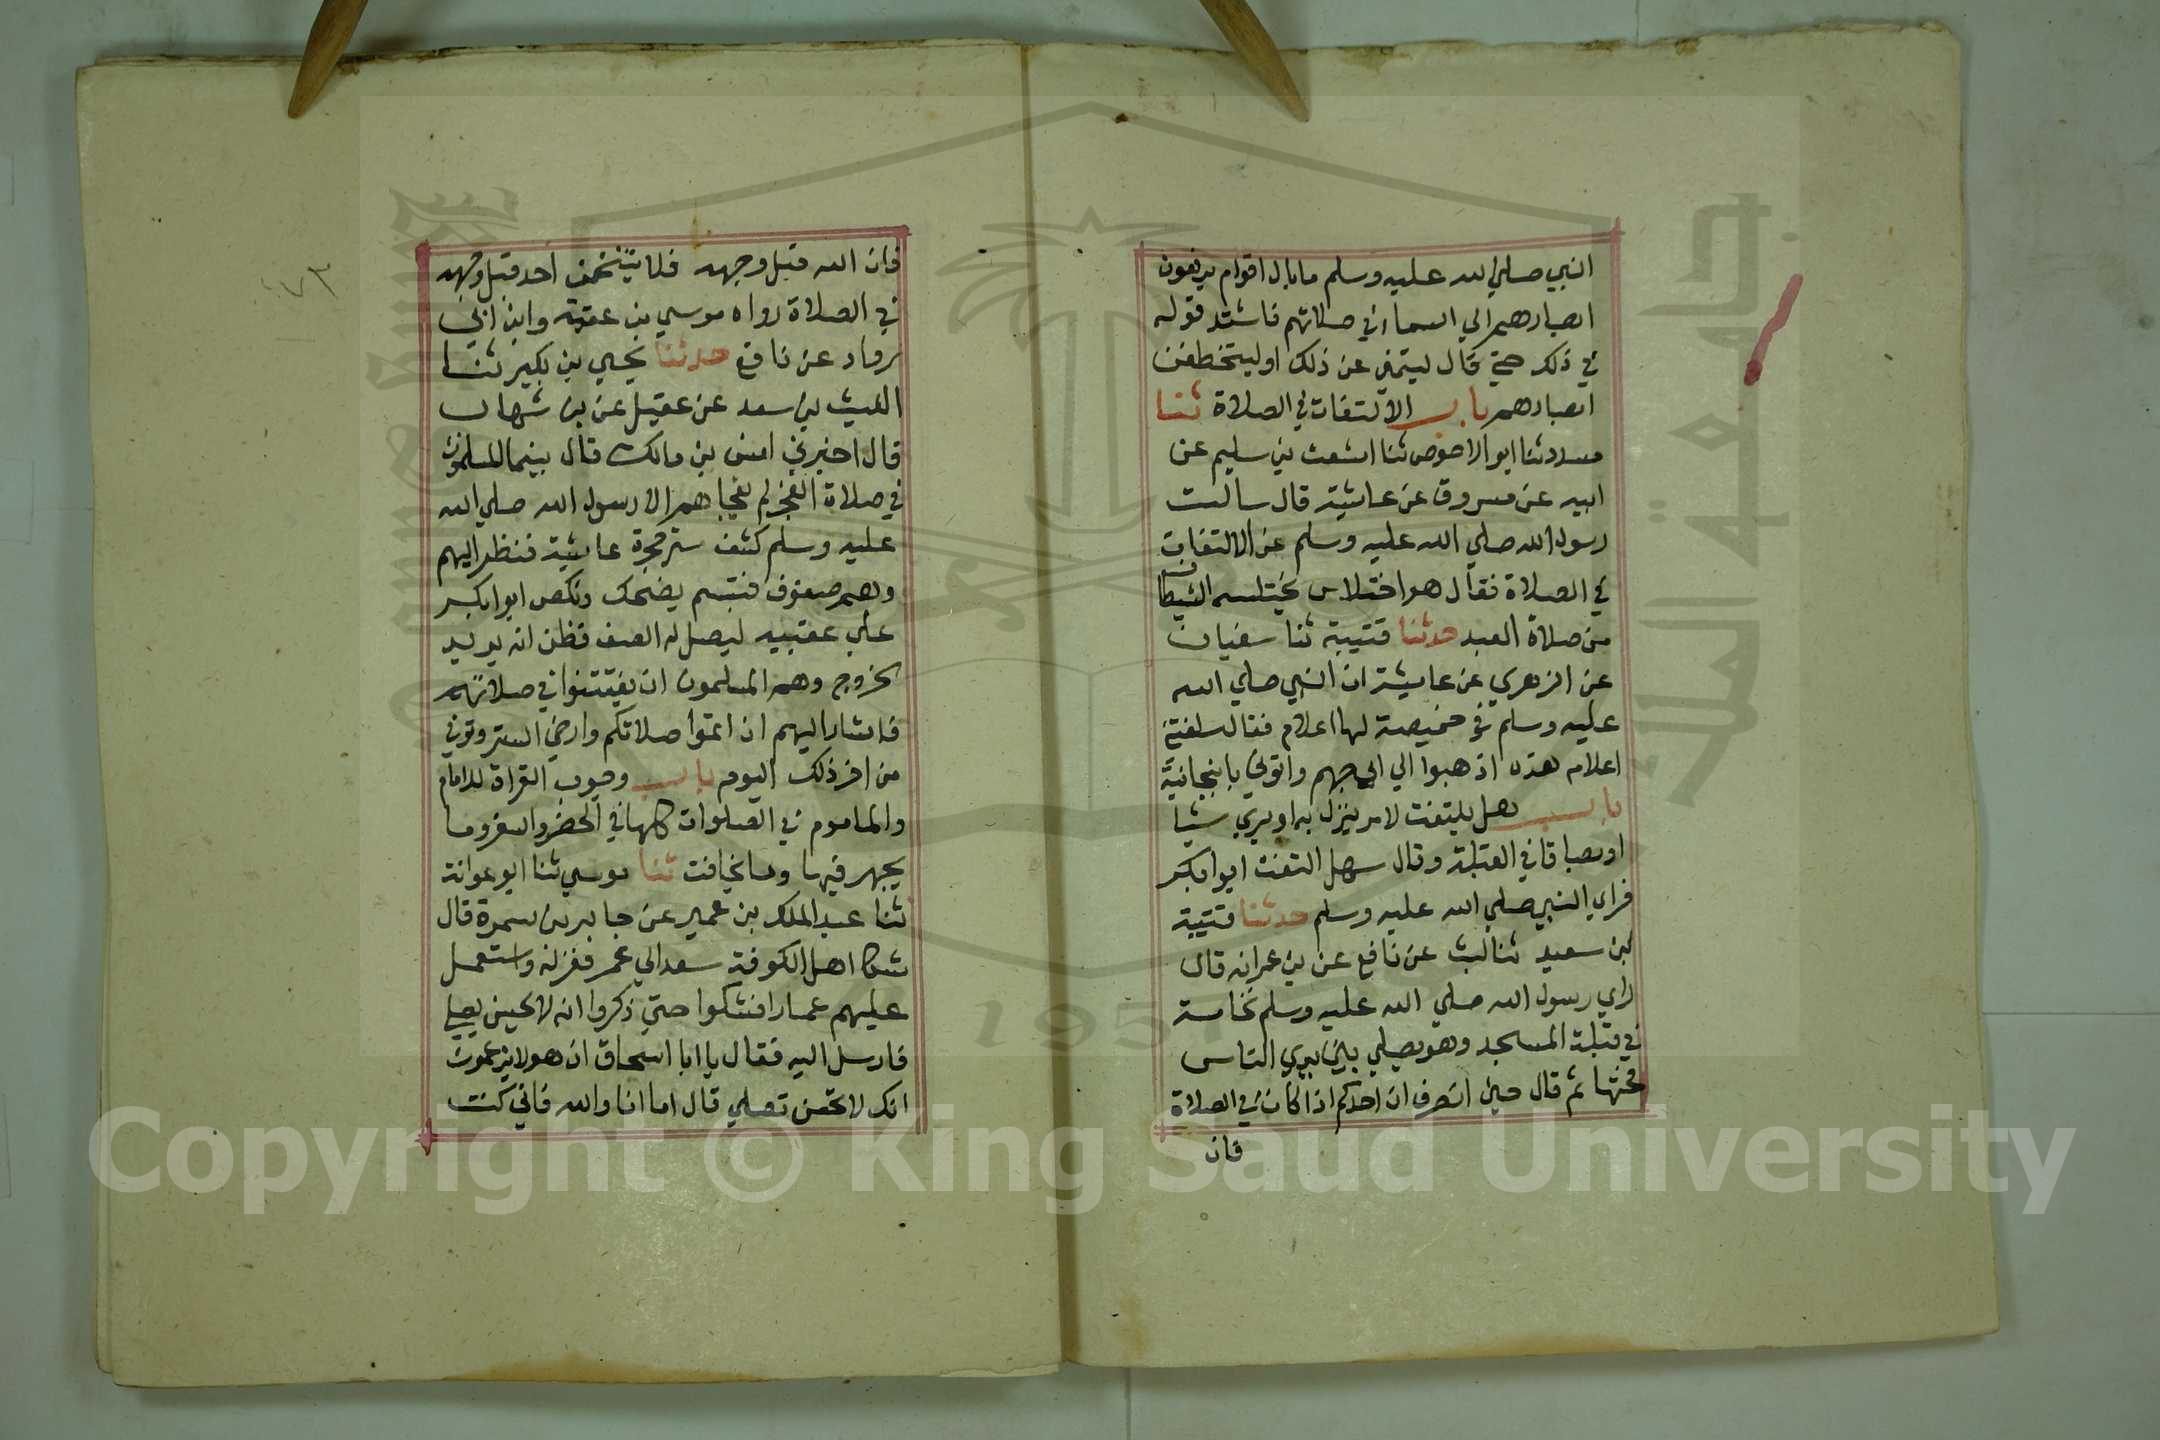 النبي صلي الله عليه وسلم ما بال اقوام يرفعون
ابصارهم الي السماء في صلاتهم فاشتد قوله
في ذلك حتي قال لينتهن عن ذلك او ليتخطفن
ابصارهم باب الالتفات في الصلاة ثنا
مسدد ثنا ابو الاحوص ثنا اشعث بن سليم عن
ابيه عن مسروق عن عايشة قال سالت
رسول الله صلي الله عليه وسلم عن الالتفات
في الصلاة فقال هو اختلاس يختلسه الشيطان
من صلاة العبد حدثنا قتيبة ثنا سفيان
عن الزهري عن عايشة ان النبي صلي الله
عليه وسلم في خميصة لها اعلام فقال شغلتني
اعلام هذه اذهبوا الي ابي جهم واتوني بانبجانية
باب هل يلتفت لامر ينزل به او يري شيا
او بصاقا في القبلة وقال سهل التفت ابوا بكر
فراي النبي صلي الله عليه وسلم حدثنا قتيبة
بن سعيد ثنا ليث عن نافع عن بن عمر انه قال
راي رسول الله صلي الله عليه وسلم نخامة
في قبلة المسجد وهو يصلي بين يدي الناس
فحتها ثم قال حين انصرف ان احدكم اذا كان في الصلاة
فان
١٧٣
فان الله قبل وجهه فلا يتنخمن احد قبل وجهه
في الصلاة رواه موسي بن عقبة وابن ابي
رواد عن نافع حدثنا يحيي بن بكير ثنا
الليث بن سعد عن عقيل عن بن شهاب
قال اخبرني انس بن مالك قال بينما المسلمون
في صلاة الفجر لم يفجاهم الا رسول الله صلي الله
عليه وسلم كشف ستر حجرة عايشة فنظر اليهم
وهم صفوف فتبسم يضحك ونكص ابوا بكر
علي عقبيه ليصل له الصف فظن انه يريد
الخروج وهم المسلمون ان يفتتنوا في صلاتهم
فاشار اليهم ان اتموا صلاتكم وارخي الستر وتوفي
من اخر ذلك اليوم باب وجوب القراة للامام
والماموم في الصلوات كلها في الحضر والسفر وما
يجهر فيها وما يخافت ثنا موسي ثنا ابو عوانة
ثنا عبد الملك بن عمير عن جابر بن سمرة قال
شكا اهل الكوفة سعد الي عمر فعزله واستعمل
عليهم عمارا فشكوا حتي ذكروا انه لا يحسن يصلي
فارسل اليه فقال يا ابا اسحاق ان هولا يزعمون
انك لا تحسن تصلي قال اما انا والله فاني كنت
جامعة الملك سعود
1957
Copyright © King Saud University